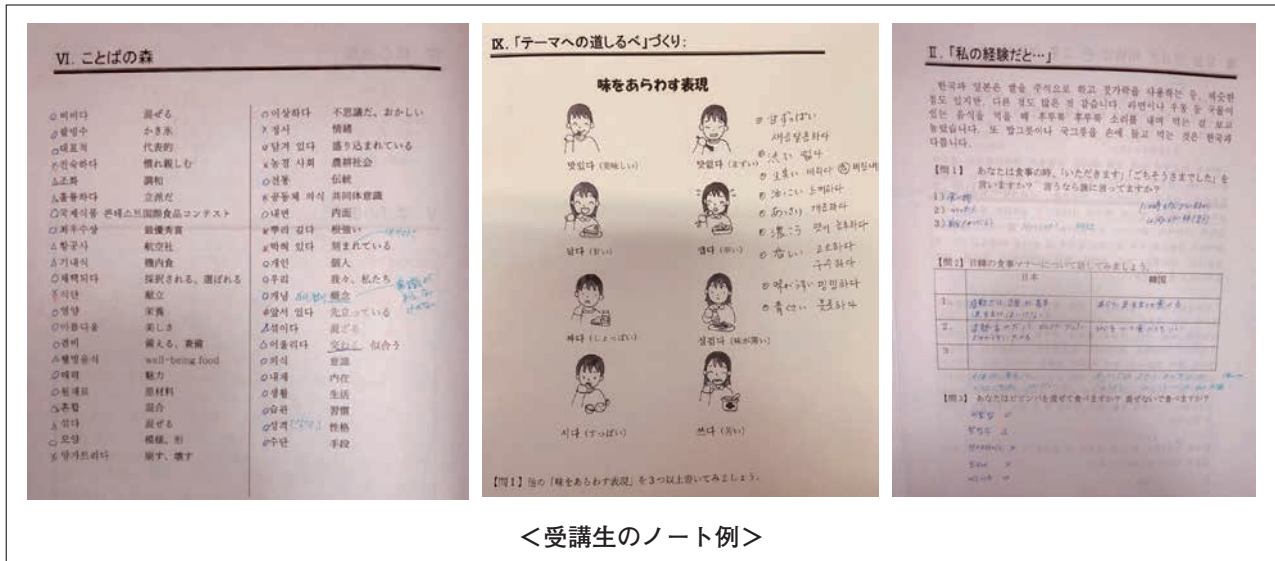 Ⅵ. ことばの森
○비비다 混ぜる
○팥빙수 かき氷
○대표적 代表的
×친숙하다 慣れ親しむ
△조화 調和
△훌륭하다 立派だ
○국제식품 콘테스트 国際食品コンテスト
○최우수상 最優秀賞
△항공사 航空社
△기내식 機内食
○채택되다 採択される、選ばれる
×식단 献立
○영양 栄養
○아름다움 美しさ
○겸비 備える、兼備
△웰빙음식 well-being food
○매력 魅力
○원재료 原材料
○혼합 混合
△섞다 混ぜる
○모양 模様、形
×망가트리다 崩す、壊す
○이상하다 不思議だ、おかしい
×정서 情緒
담겨 있다 盛り込まれている
×농경 사회 農耕社会
○전통 伝統
×공동체 의식 共同体意識
○내면 内面
×뿌리 깊다 根強い
×박혀 있다 刻まれている
○개인 個人
○우리 我々、私たち
○개념 概念
앞서 있다 先立っている
섞이다 混ざる
△어울리다 交わる、似合う
○의식 意識
○내재 内在
○생활 生活
○습관 習慣
○성격 性格
○수단 手段
Ⅸ.「テーマへの道しるべ」づくり:
味をあらわす表現
맛있다 (美味しい)
맛없다 (まずい)
달다 (甘い)
맵다 (辛い)
짜다 (しょっぱい)
싱겁다 (味が薄い)
시다 (すっぱい)
쓰다 (苦い)
甘ずっぱい
새콤달콤하다
渋い 떫다
生臭い 비리다
油こい 느끼하다
あっさり 개운하다
濃こう 맛이 농후하다
香しい 고소하다
구수하다
味がうすい 밍밍하다
青くさい 풋풋하다
【問1】他の「味をあらわす表現」を3つ以上書いてみましょう。
Ⅱ.「私の経験だと…」
한국과 일본은 쌀을 주식으로 하고 젓가락을 사용하는 등, 비슷한
점도 있지만, 다른 점도 많은 것 같습니다. 라면이나 우동 등 국물이
있는 음식을 먹을 때 후루룩 후루룩 소리를 내며 먹는 걸 보고
놀랐습니다. 또 밥그릇이나 국그릇을 손에 들고 먹는 것은 한국과
다릅니다.
【問1】 あなたは食事の時、「いただきます」「ごちそうさまでした」を
言いますか? 言うなら誰に言ってますか?
1)
2)
3)
【問2】日韓の食事マナーについて話してみましょう。
日本 韓国
1.
2.
3.
【問3】あなたはビビンバを混ぜて食べますか? 混ぜないで食べますか?
＜受講生のノート例＞